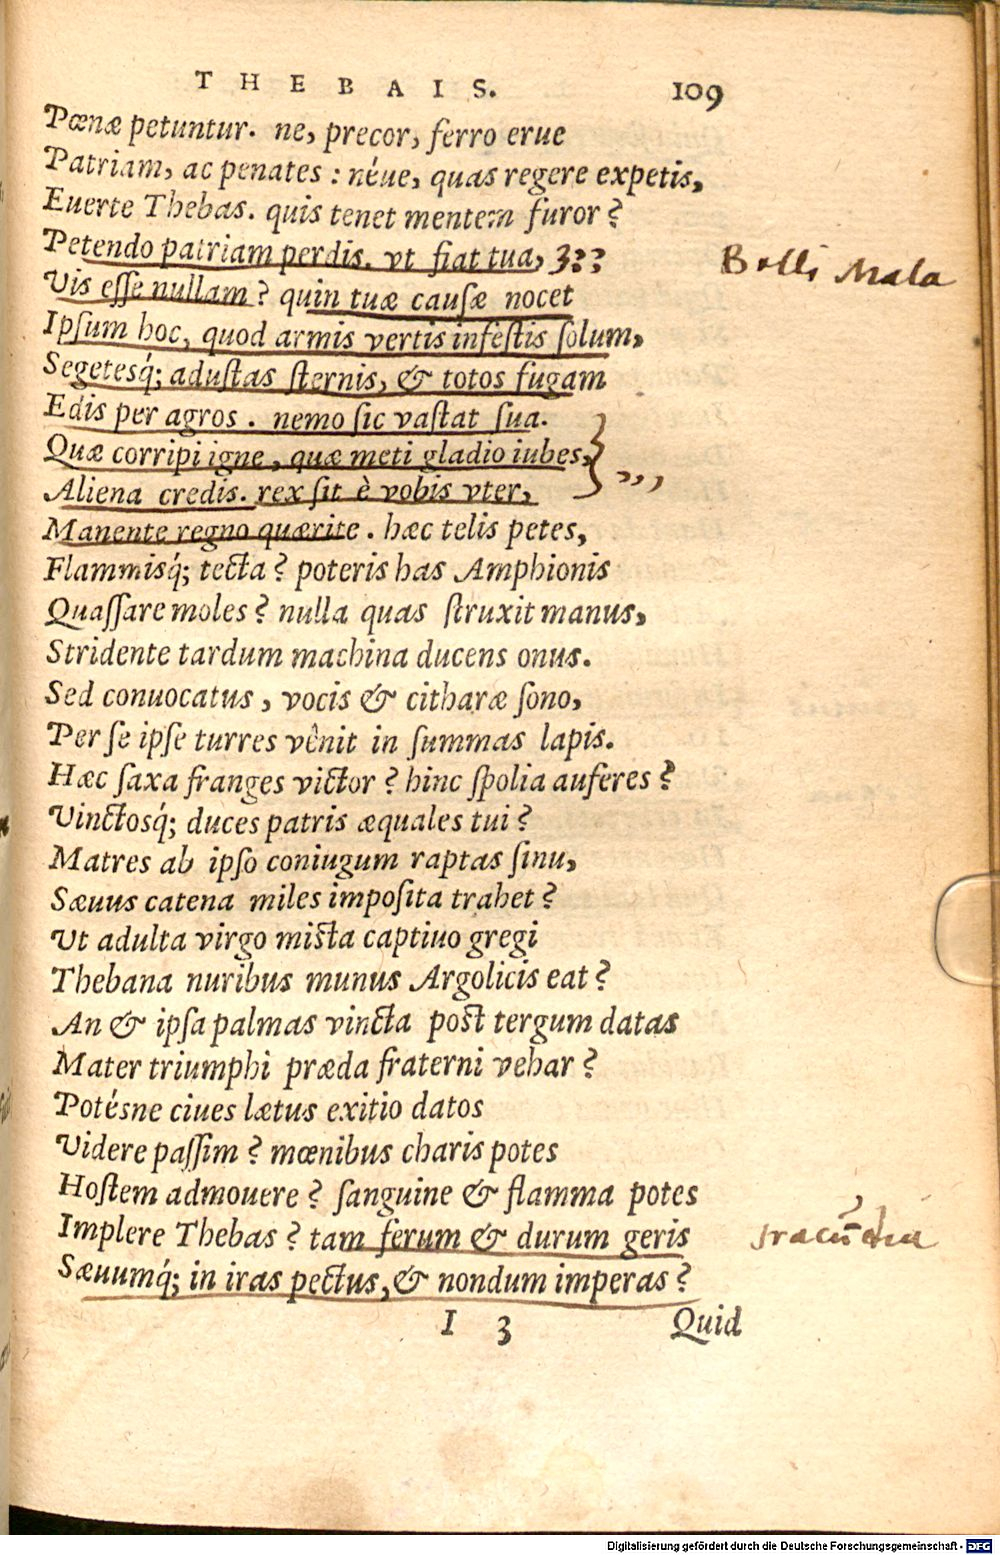 THEBAIS. 109
Pœnæ petuntur. ne, precor, ferro erue
Patriam, ac penates : néue, quas regere expetis,
Euerte Thebas. quis tenet mentem furor?
Petendo patriam perdis. vt fiat tua, 3??
Belli Mala
Vis eſſe nullam? quin tuæ cauſæ nocet
Ipſum hoc, quod armis vertis infeſtis ſolum,
Segetesq́; aduſtas ſternis, & totos fugam
Edis per agros. nemo ſic vaſtat ſua.
Quæ corripi igne, quæ meti gladio iubes,
Aliena credis. rex ſit è vobis vter,
Manente regno quærite. hæc telis petes,
Flammisq́; tecta? poteris has Amphionis
Quaſſare moles? nulla quas ſtruxit manus,
Stridente tardum machina ducens onus.
Sed conuocatus, vocis & citharæ ſono,
Per ſe ipſe turres vênit in ſummas lapis.
Hæc ſaxa franges victor? hinc ſpolia auferes?
Vinctosq́; duces patris æquales tui?
Matres ab ipſo coniugum raptas ſinu,
Sæuus catena miles impoſita trahet?
Vt adulta virgo miſta captiuo gregi
Thebana nuribus munus Argolicis eat?
An & ipſa palmas vincta poſt tergum datas
Mater triumphi præda fraterni vehar?
Potésne ciues lætus exitio datos
Videre paſſim? mœnibus charis potes
Hoſtem admouere? ſanguine & flamma potes
Implere Thebas? tam ferum & durum geris
Sæuumq́; in iras pectus, & nondum imperas?
I 3 Quid
Digitalisierung gefördert durch die Deutsche Forschungsgemeinschaft - DFG